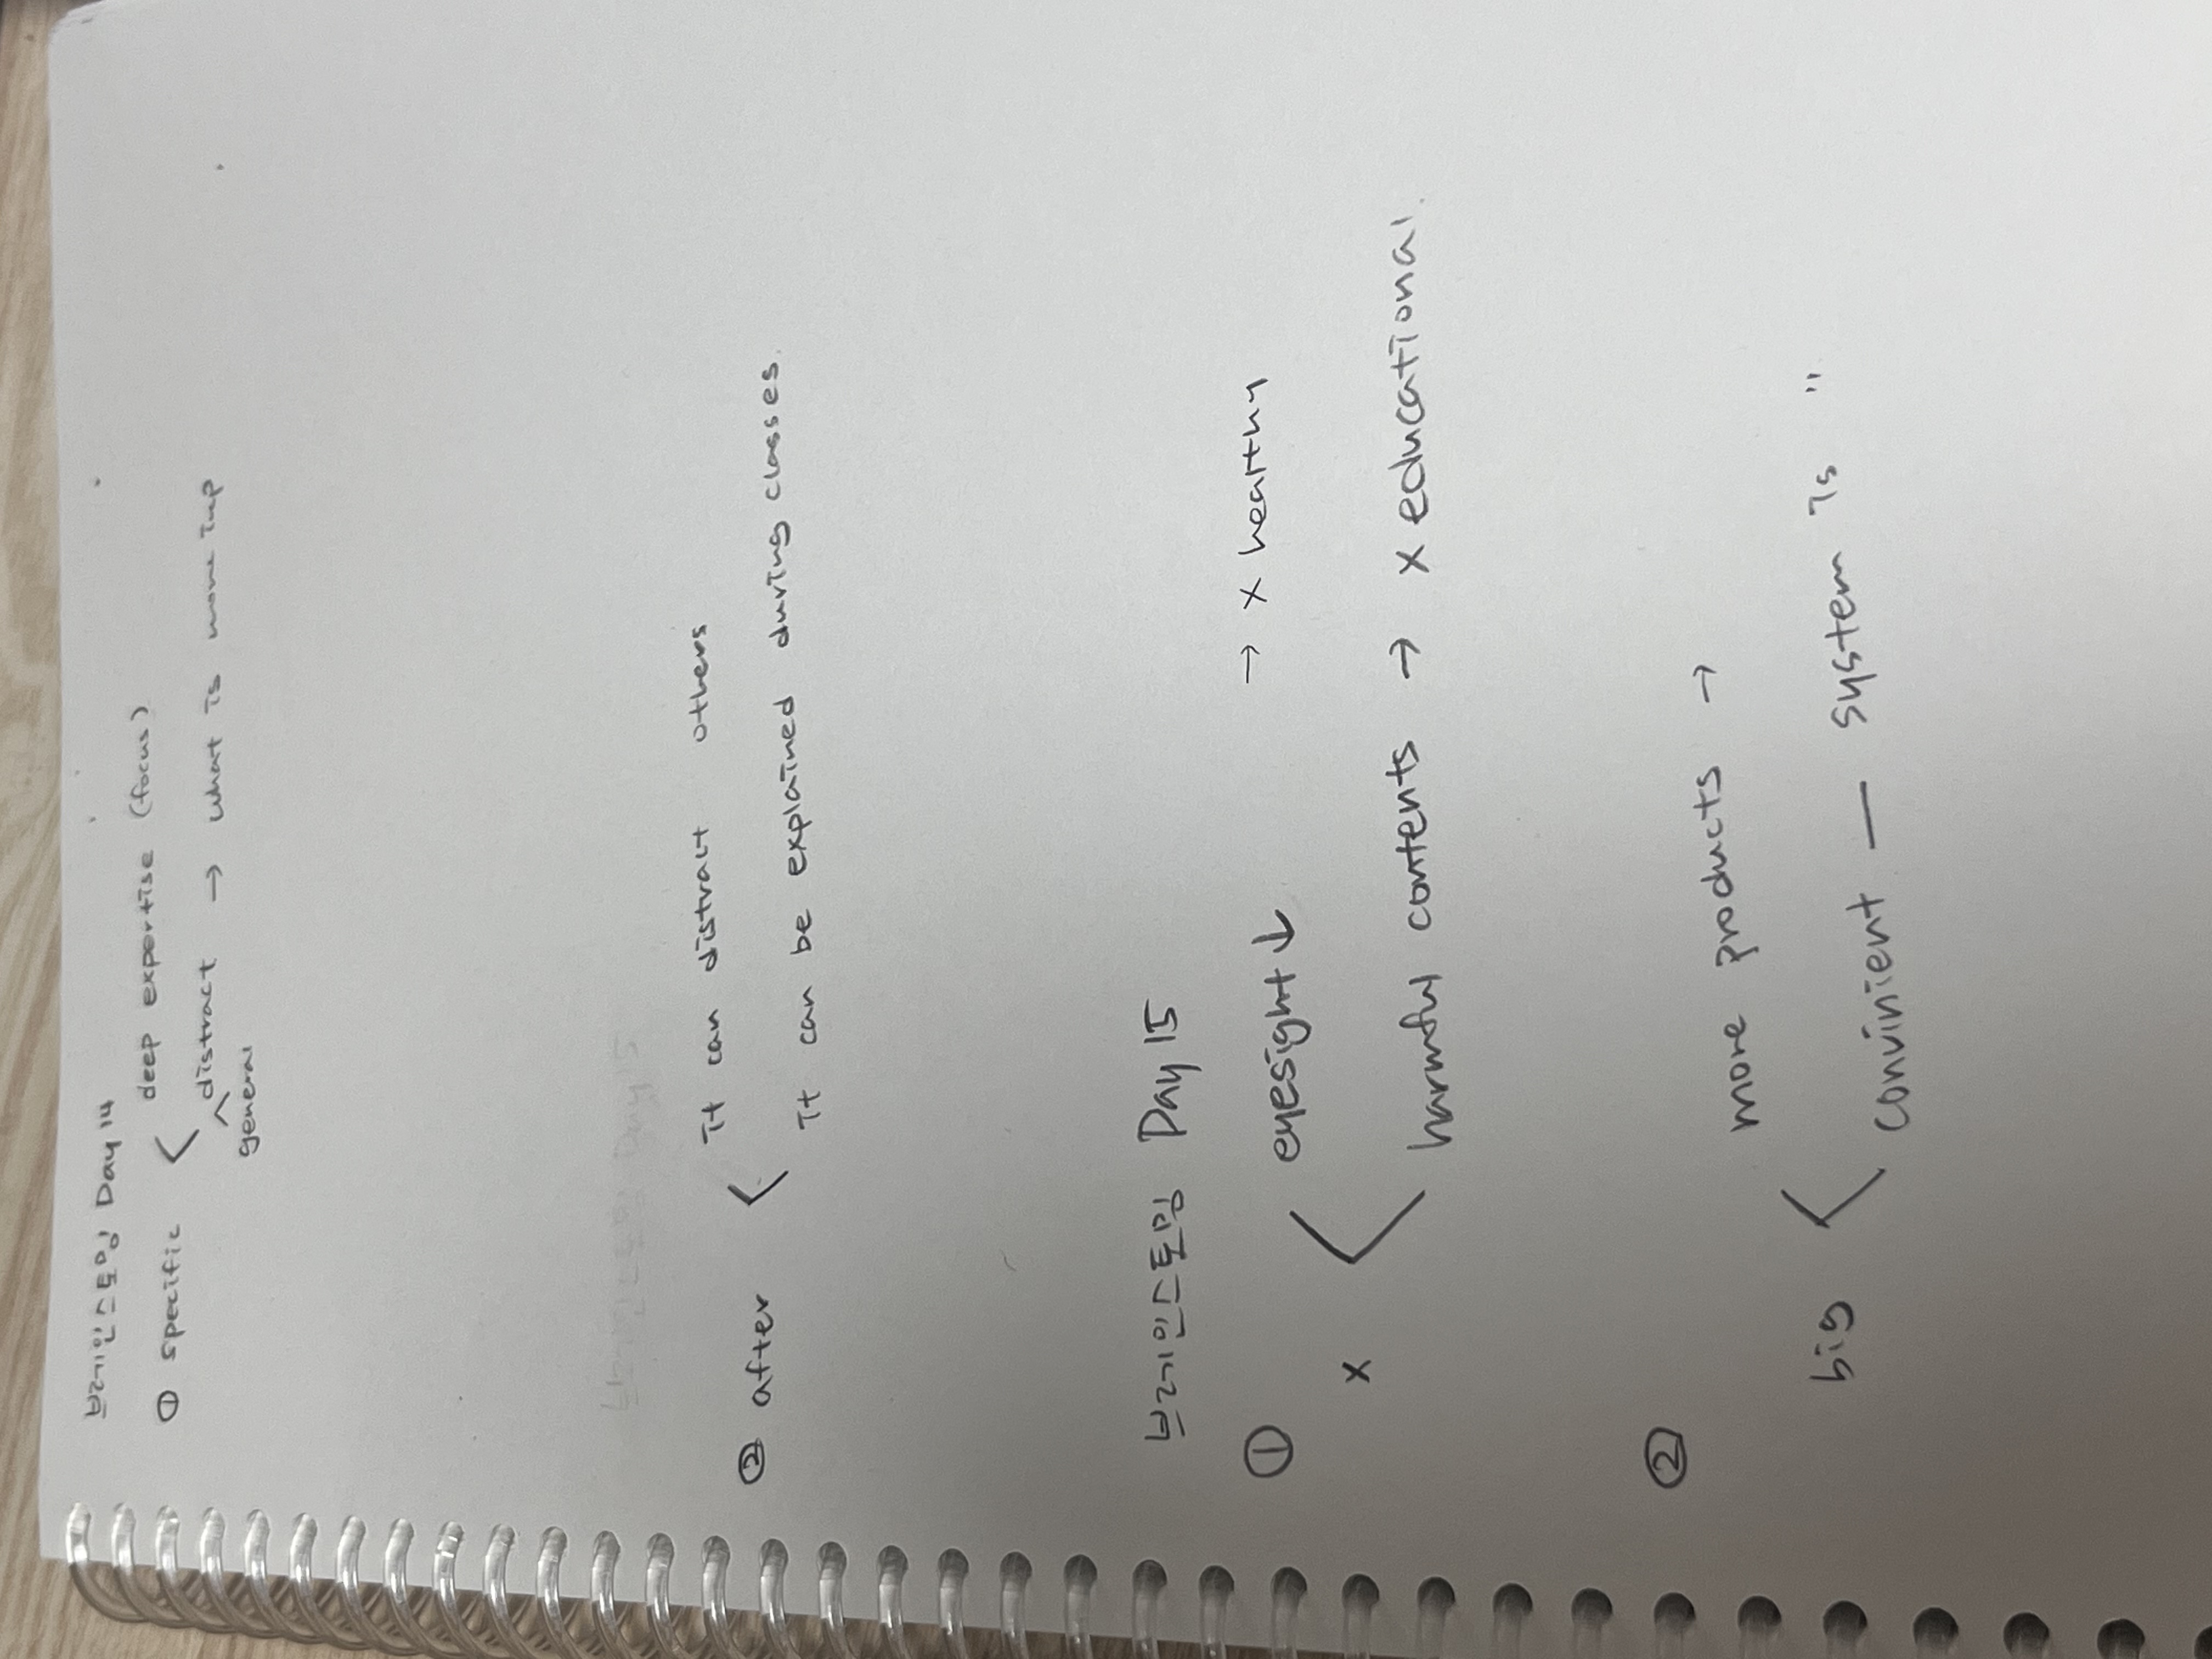 브레인스토밍 Day 14
① specific < deep expertise (focus)
distract → what is more imp
^ general
② after < It can distract others
It can be explained during classes.
브레인스토밍 Day 15
① x < eyesight↓ → x healthy
harmful contents → x educational.
② big < more products →
convinient — system is "